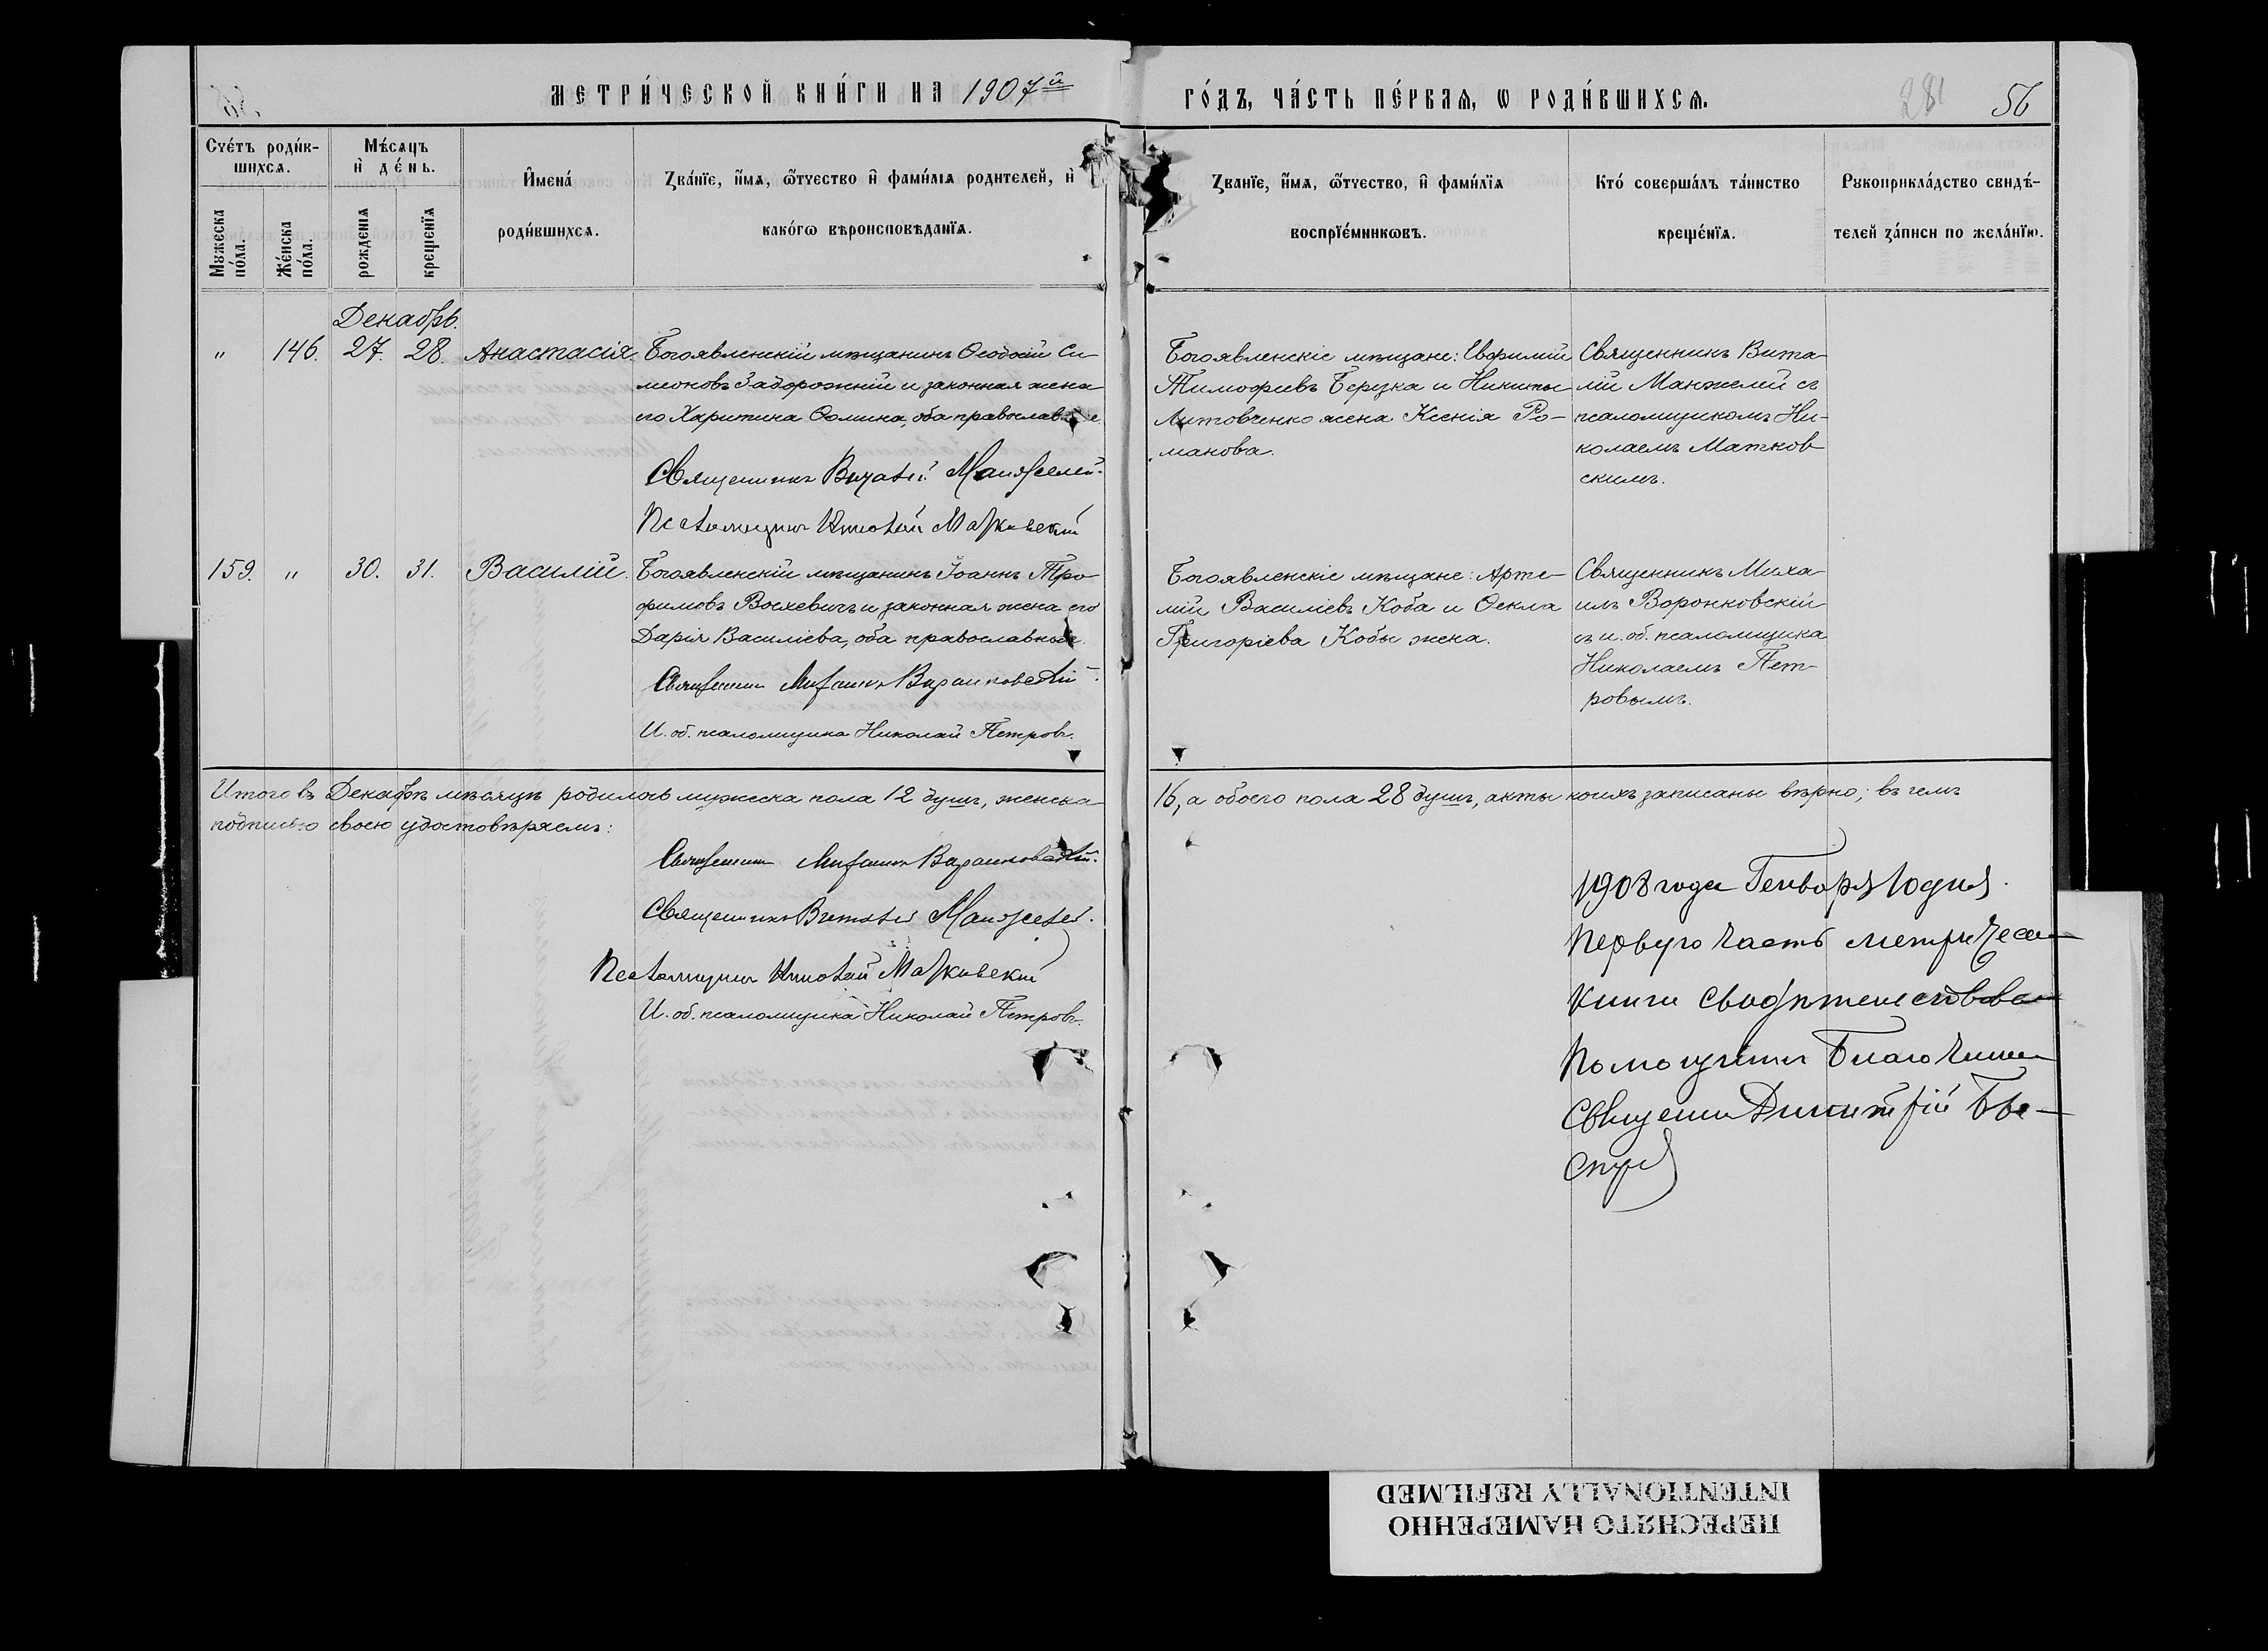 МЕТРИ́ЧЕСКОЙ КНИ́ГИ НА 1907й
ГО́ДЪ, ЧА́СТЬ ПЕ́РВАѦ, Ѡ РОДИ́ВШИХСѦ.
281
56
Счéтъ роди́в-
шихсѧ.
Мꙋжеска
по́ла.
Же́нска
по́ла.
Мѣ́сѧцъ
и҆ де́нь.
рожденїѧ
крещенїѧ
И҆мена́
роди́вшихсѧ.
Зва́нїе, и҆́мѧ, ѿтчество и҆ фами́лїѧ родителей, и҆
како́гѡ вѣроисповѣданїѧ.
Званїе, и҆́мѧ, ѿтчество, и҆ фами́лїѧ
воспрїе́мникѡвъ.
Кто́ соверша́лъ та́инство
креще́нїѧ.
Рꙋкоприкла́дство свидѣ́-
телей за́писи по жела́нїю.
Декабрь.
" 146. 27. 28. Анастасія.
Богоявленскій мѣщанинъ Ѳеодосій Си-
меоновъ Задорожній и законная жена
его Харитина Ѳомина, оба православные
Священникъ Виталій Манжелей.
Псаломщикъ Николай Матковскій
Богоявленскіе мѣщане: Евфимій
Тимофеевъ Березка и Никиты
Литовченко жена Ксенія Ро-
манова.
Священникъ Вита-
лій Манжелей съ
псаломщикомъ Ни-
колаемъ Матков-
скимъ.
159. " 30. 31. Василій.
Богоявленскій мѣщанинъ Іоаннъ Тро-
фимовъ Восхевичъ и законная жена его
Дарія Василіева, оба православные.
Священникъ Михаилъ Воронковскій.
И. об. псаломщика Николай Петровъ.
Богоявленскіе мѣщане: Арте-
мій Василіевъ Коба и Ѳекла
Григоріева Кобы жена.
Священникъ Миха-
илъ Воронковскій
съ и. об. псаломщика
Николаемъ Пет-
ровымъ.
Итого въ Декабрѣ мѣсяцѣ родилось мужеска пола 12 душъ, женска
16, а обоего пола 28 душъ, акты коихъ записаны вѣрно; въ чемъ
подписью своею удостовѣряемъ:
Священникъ Михаилъ Воронковскій.
Священникъ Виталій Манжелей.
Псаломщикъ Николай Матковскій
И. об. псаломщика Николай Петровъ.
1908 года Генваря 10 дня.
Первую часть метрическ
книги свидѣтельствова
Помощникъ Благочинн
Священни Димитрій
ПЕРЕСНЯТО НАМЕРЕННО
INTENTIONALLY REFILMED